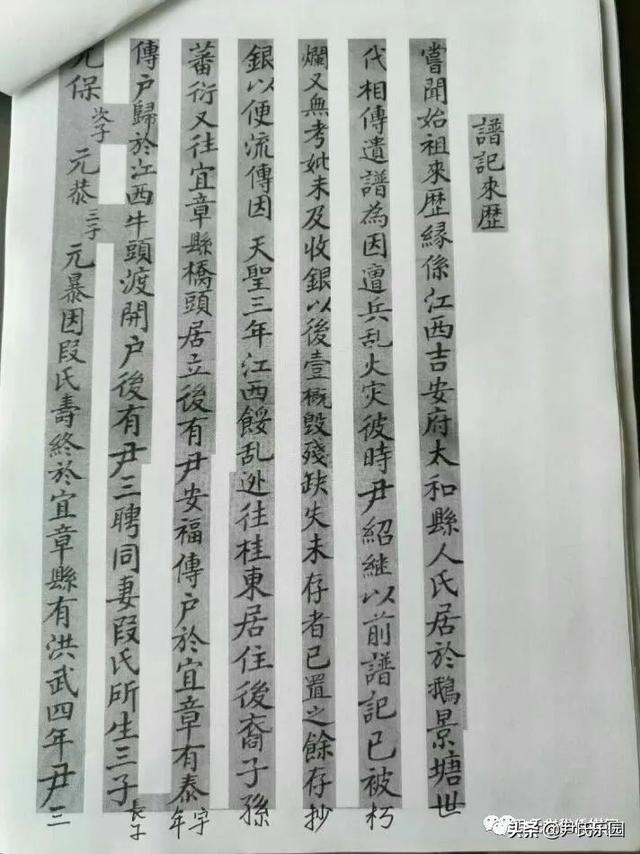 譜記來歷
嘗聞始祖來歷緣係江西吉安府太和縣人氏居於鵝景塘世
代相傳遺譜為因遭兵乱火灾彼時尹紹継以前譜記已被朽
爛又無考妣未及收銀以後壹概毀殘缺失未存者已置之餘存抄
銀以便流傳因 天聖三年江西餒乱迯往桂東居住後裔子孫
蕃衍又往宜章縣橋頭居立後有尹安福傳户於宜章有泰字年
傳户歸於江西牛頭渡開户後有尹三聘同妻叚氏所生三子長子
元保次子元恭三子元暴因叚氏壽終於宜章縣有洪武四年尹三
头条@尹氏乐园